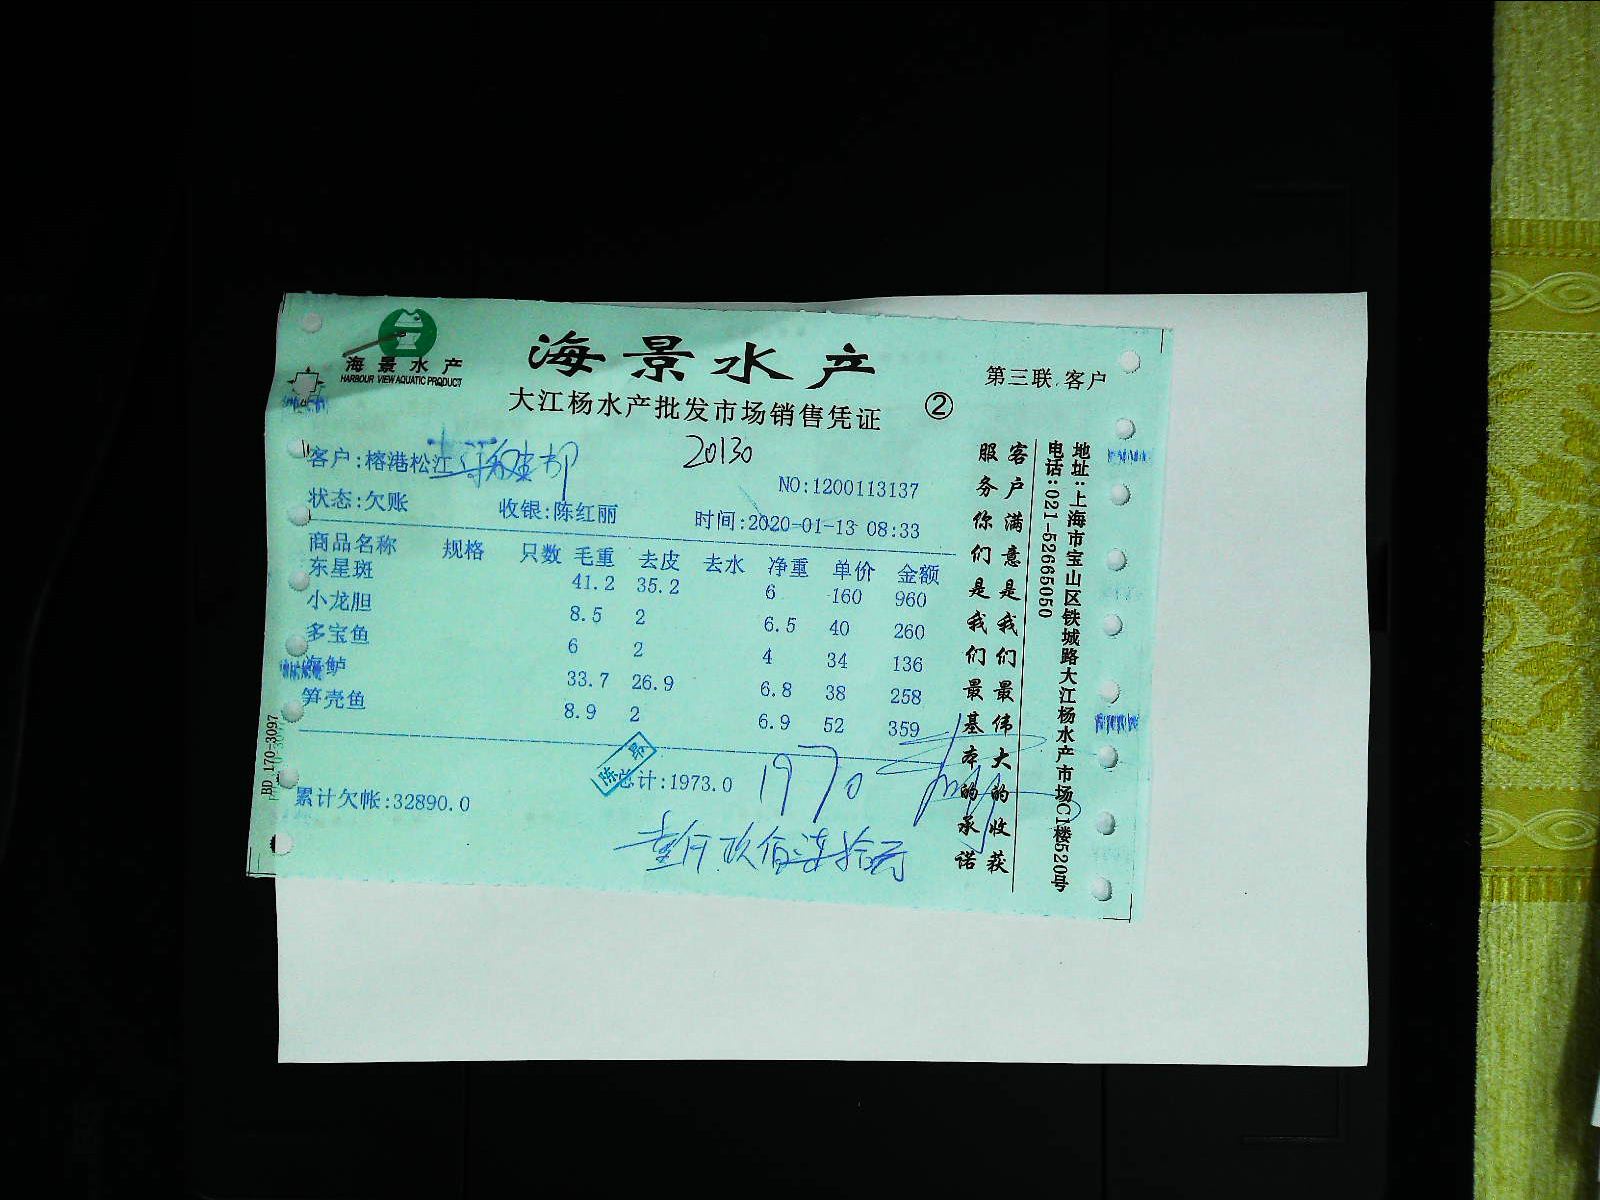 海景水产
HARBOUR VIEW AQUATIC PRODUCT
海景水产
大江杨水产批发市场销售凭证
②
第三联.客户
客户:榕港松江
20130
NO:1200113137
状态:欠账 收银:陈红丽 时间:2020-01-13 08:33
商品名称 规格 只数 毛重 去皮 去水 净重 单价 金额
东星斑 41.2 35.2 6 160 960
小龙胆 8.5 2 6.5 40 260
多宝鱼 6 2 4 34 136
海鲈 33.7 26.9 6.8 38 258
笋壳鱼 8.9 2 6.9 52 359
陈昂
总计:1973.0 1970
累计欠帐:32890.0
壹仟玖佰柒拾元
客户满意是我们最伟大的收获
服务你们是我们最基本的承诺
地址:上海市宝山区铁城路大江杨水产市场C1楼520号
电话:021-52665050
BD 170-3097